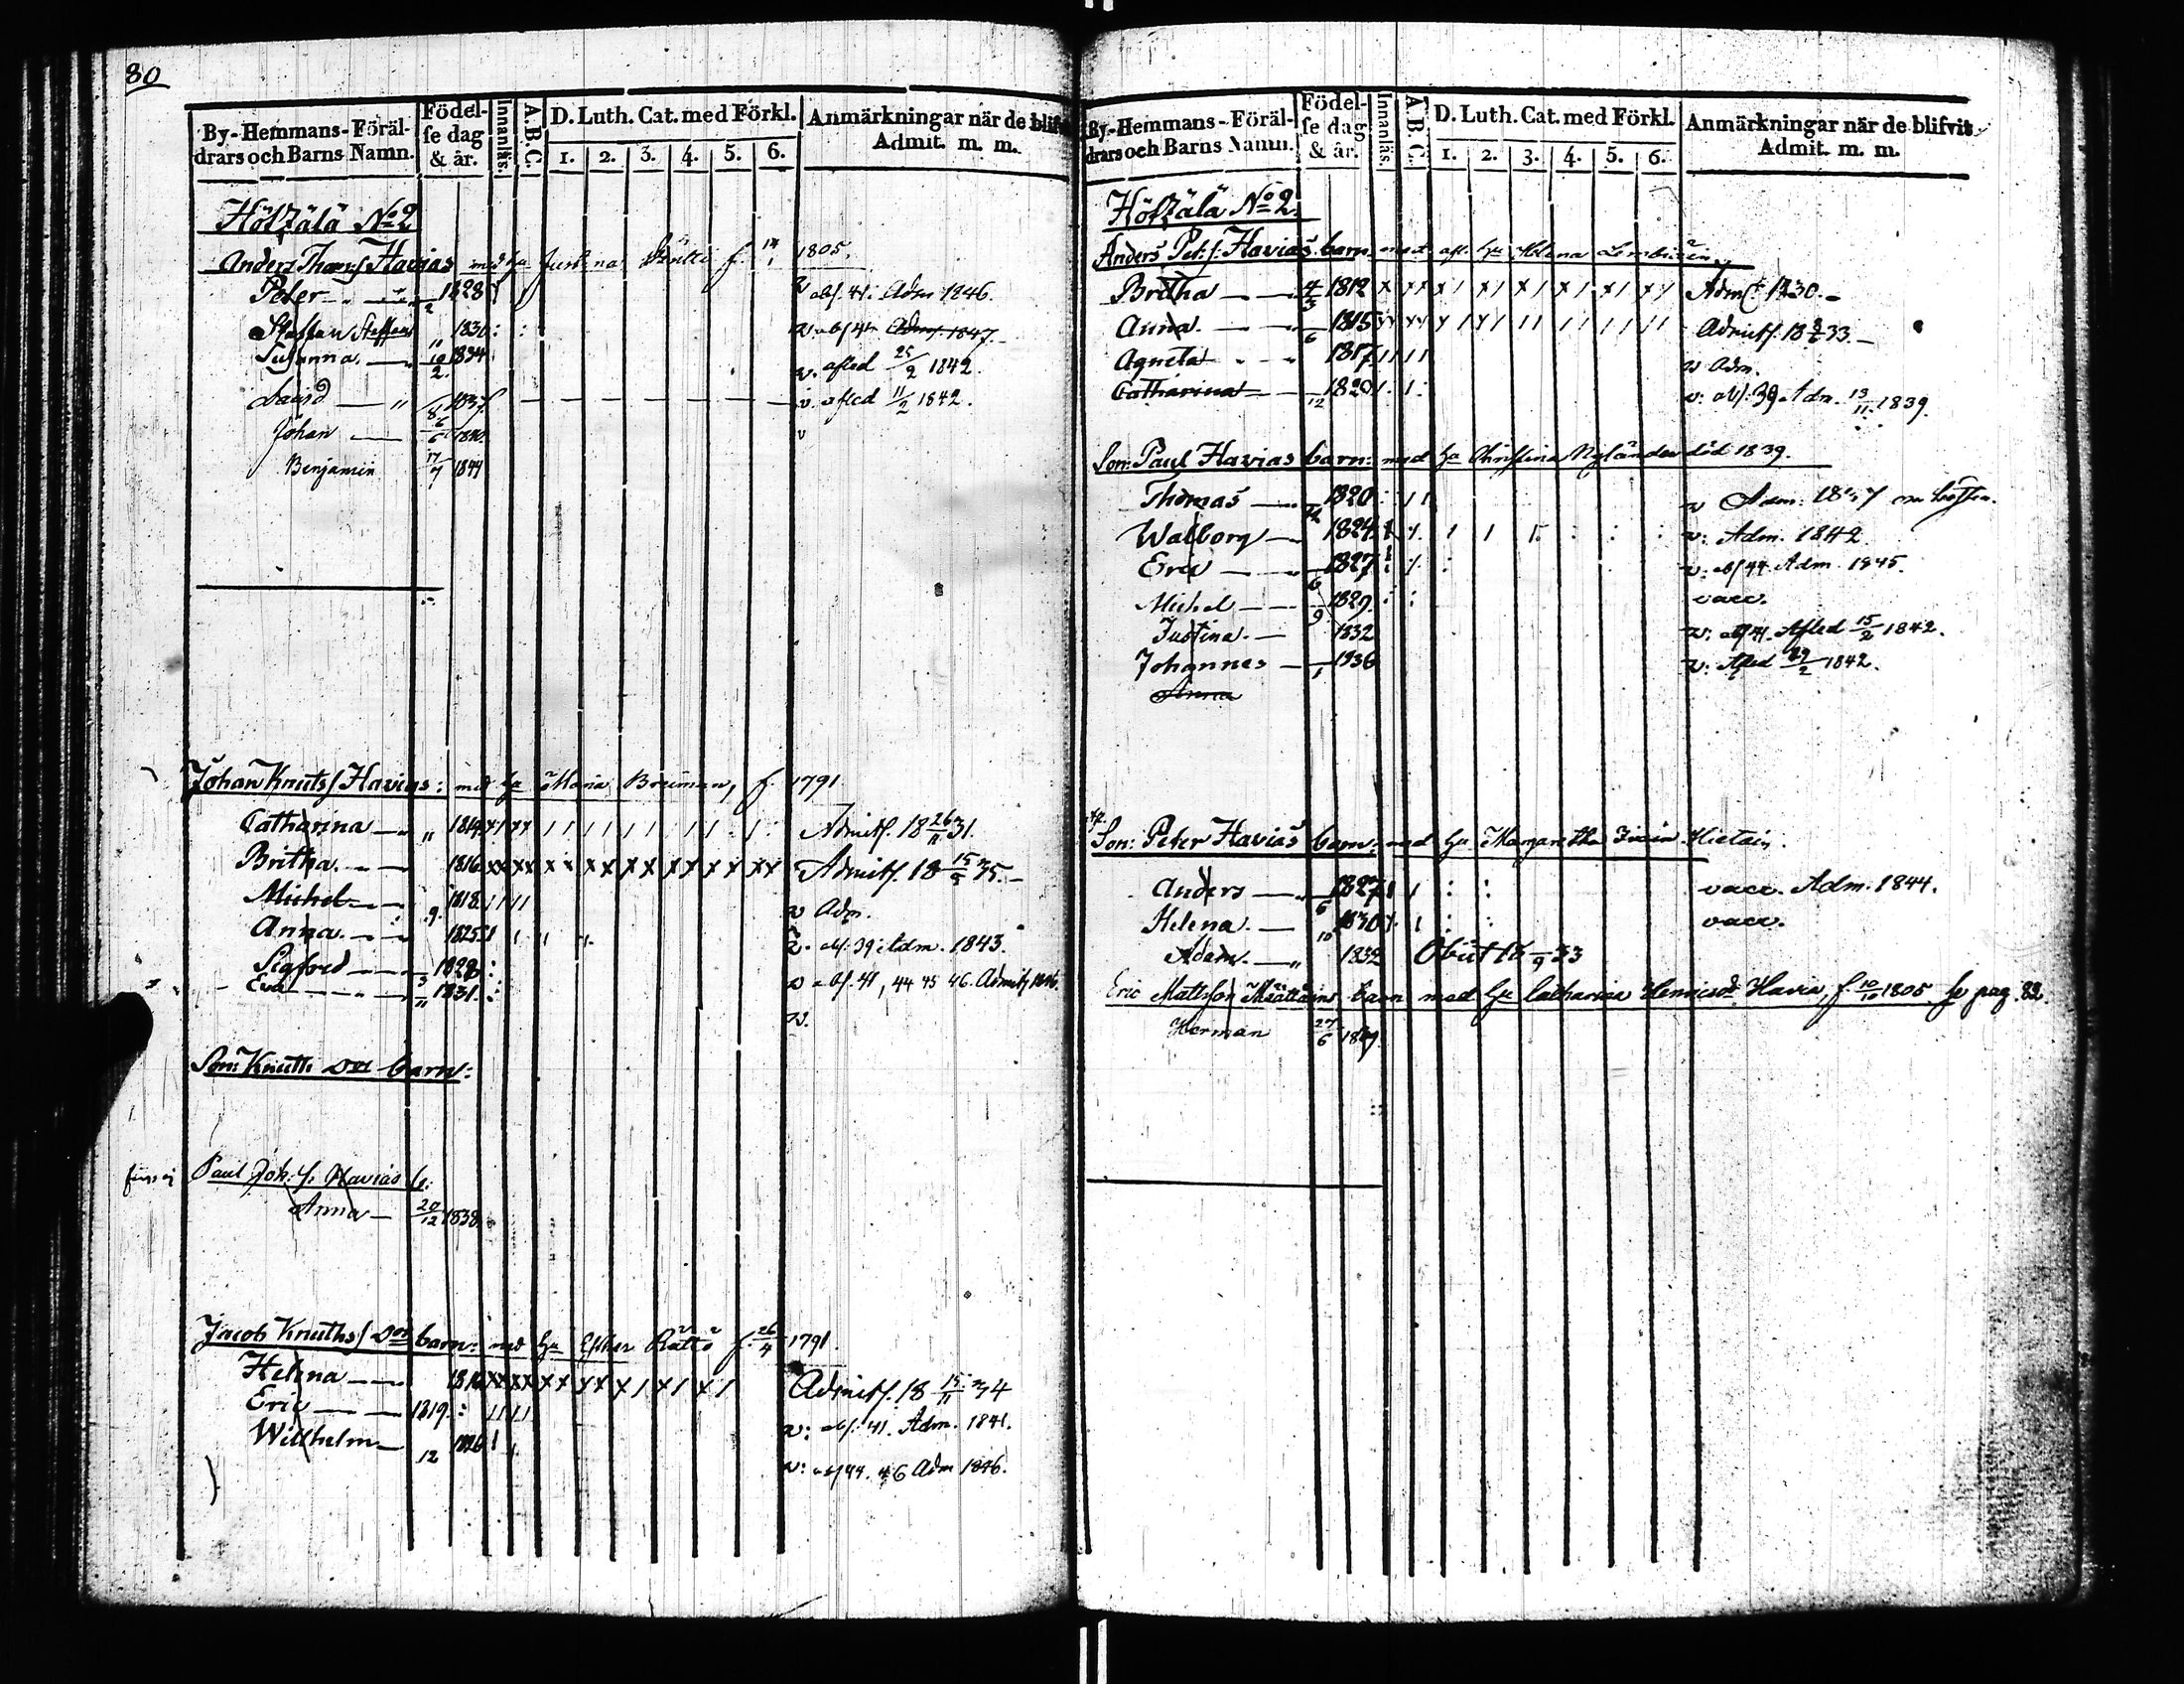 80
By-Hemmans-Föräl-
drars och Barns Namn.
Födel-
se dag
& år.
Innanläs.
A.B.C.
D. Luth. Cat. med Förkl.
1. 2. 3. 4. 5. 6.
Anmärkningar när de blifv
Admit. m. m.
No 2
Anders Havias med hu Justina f. 1805.
Peter 1828 v abs. 41. Adm 1846.
Staffan Steffan 1830 v. abs 41 Adm. 1847.
Susanna 10/2 1834 v. afled 25/2 1842.
David 1837 v. afled 11/2 1842.
Johan 1840 v
Benjamin 17/7 1844
Johan Knuts/ Havias: med hu Maria f. 1791
Catharina 1814 x / x x / / / / / / / / / / Admitt. 18 26/11 31.
Britha 1816 x x x x x x x x x x x x x x x x Admitt. 18 15/9 35.
Michel 9 1818 / / / / v Adm.
Anna 1825 v. abs. 39. Adm. 1843.
Sigfred 3 1828 v abs. 41, 44 45 46. Admitt 1846.
Eva 11 1831 v.
Son: Knuth barn:
Paul Joh: s. Havias b:
Anna 20/12 1838
Jacob Knuths/ barn: med hu Esther Rättö f. 26/4 1791.
Helena 1816 x x x x x x x x x / x / x / Admitt. 18 15/11 34
Eric 1819 : / / / / v: abs. 41. Adm. 1841.
Willhelm 12 1826 v: abs 44. 46 Adm 1846.
By-Hemmans-Föräl-
drars och Barns Namn.
Födel-
se dag
& år.
Innanläs.
A.B.C.
D. Luth. Cat. med Förkl.
1. 2. 3. 4. 5. 6.
Anmärkningar när de blifvit
Admit. m. m.
No 2.
Anders Pet: s. Havias barn med afl. hu Helena
Britha 4/3 1812 x x x x / x / x / x / x / x / Adm 1830.
Anna 6 1815 x / x / / / / / / / / / Admitt. 18 33.
Agneta 1817 / / / / v Adm.
Catharina 12 1820 v: abs: 39 Adm. 13/11 1839.
Son: Paul Havias barn: med hu Christina Nyländer död 1839.
Thomas 1820 : / / v Adm:
Walborg 1824 v: Adm. 1842.
Eric 6 1827 v. abs 44. Adm. 1845.
Michel 9 1829 : : vacc.
Justina 1832 v: abs 41. Afled 15/2 1842.
Johannes 1 1836 v: Afled 29/2 1842.
Anna
Son: Peter Havias barn: med hu Margaretha Hietain.
Anders 6 1827 / / : : vacc. Adm. 1844.
Helena 10 1830 / : : vacc.
Adam 1832 Obiit 18 /9 33
Eric Mattsson barn med hu Catharina Henricsd. Havia, f. 10/10 1805 se pag. 82.
Herman 27/6 1849.